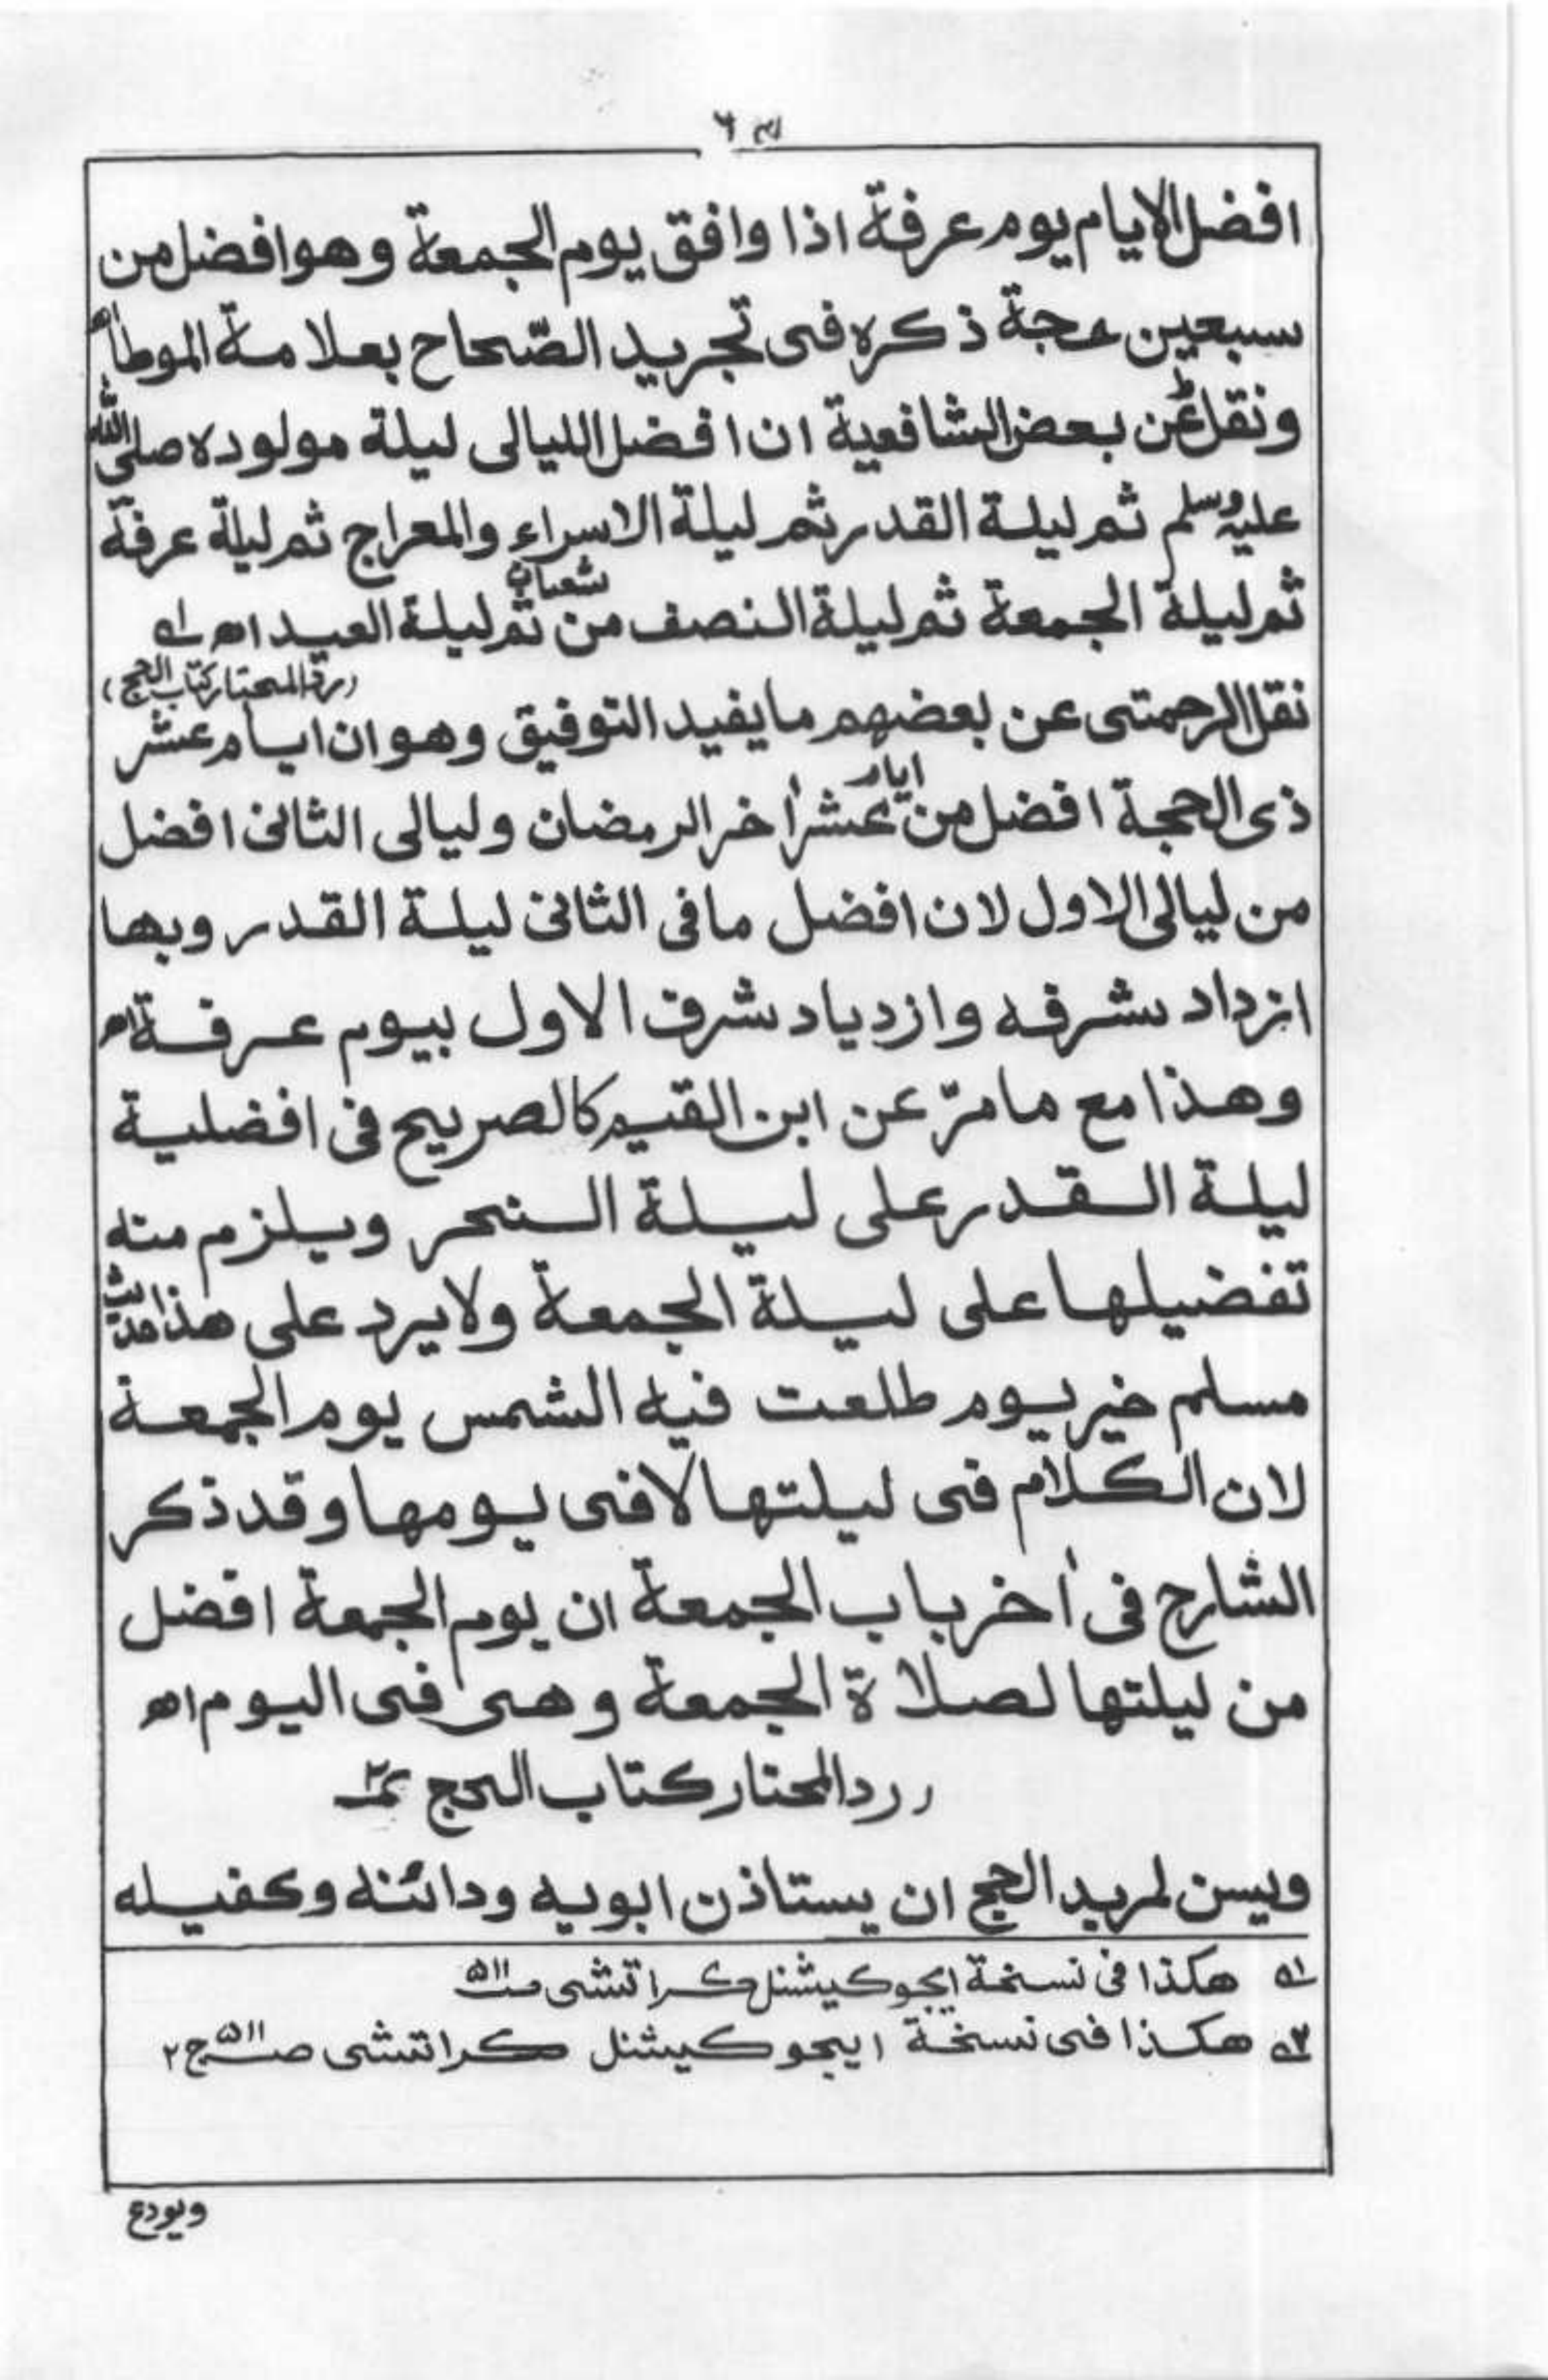 افضل الايام يوم عرفة اذا وافق يوم الجمعة وهو افضل من
سبعين حجة ذكره فى تجريد الصّحاح بعلامة الموطأ اه
ونقل ط عن بعض الشافعية ان افضل الليالى ليلة مولوده صلى الله
عليه وسلم ثم ليلة القدر ثم ليلة الاسراء والمعراج ثم ليلة عرفة
ثم ليلة الجمعة ثم ليلة النصف من شعبان ثم ليلة العيد اه ١ه
(رد المحتار كتاب الحج)
نقل الرحمتى عن بعضهم ما يفيد التوفيق وهو ان ايام عشر
ذى الحجة افضل من ايام عشر اٰخر الرمضان وليالى الثانى افضل
من ليالى الاول لان افضل ما فى الثانى ليلة القدر وبها
ازداد شرفه وازدياد شرف الاول بيوم عرفة اه
وهذا مع ما مرّ عن ابن القيم كالصريح فى افضلية
ليلة القدر على ليلة النحر ويلزم منه
تفضيلها على ليلة الجمعة ولا يرد على هذا حديث
مسلم خير يوم طلعت فيه الشمس يوم الجمعة
لان الكلام فى ليلتها لا فى يومها وقد ذكر
الشارح فى اٰخر باب الجمعة ان يوم الجمعة افضل
من ليلتها لصلاة الجمعة وهى فى اليوم اه
(رد المحتار كتاب الحج
ويسن لمريد الحج ان يستاذن ابويه ودائنه وكفيله
١ه هكذا فى نسخة ايجوكيشنل كراتشى صـ٥١١
٢ه هكذا فى نسخة ايجوكيشنل كراتشى صـ٥١١ ج٢
ويودع